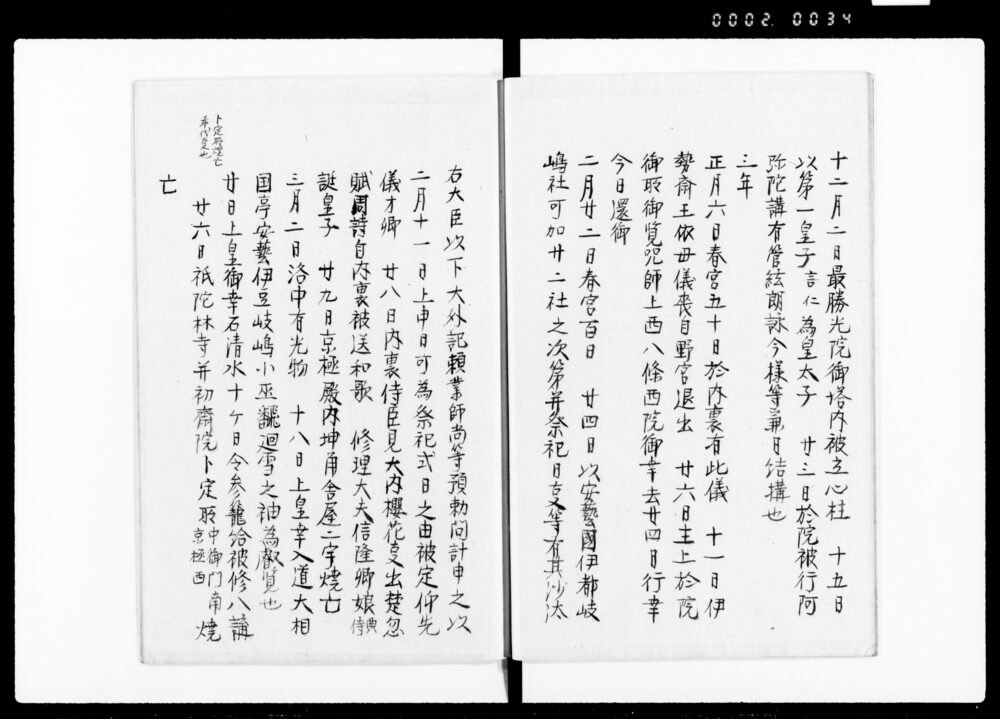 0002.0034
十二月二日最勝光院御塔内被立心柱　十五日
以第一皇子言仁為皇太子　廿三日於院被行阿
弥陀講有管絃朗詠今様等兼日結構也
三年
正月六日春宮五十日於内裏有此儀　十一日伊
勢斎王依母儀喪自野宮退出　廿六日主上於院
御所御覧呪師上西八條西院御幸去廿四日行幸
今日還御
二月廿二日春宮百日　廿四日以安藝國伊都岐
嶋社可加廿二社之次第并祭祀日支等有其沙汰
右大臣以下大外記頼業師尚等預勅問計申之以
二月十一日上申日可為祭祀式日之由被定仰先
儀才卿　廿八日内裏侍臣見大内櫻花支出楚忽
賦周詩自内裏被送和歌　修理大夫信隆卿娘典侍
誕皇子　廿九日京極殿内坤角舎屋二宇焼亡
三月二日洛中有光物　十八日上皇幸入道大相
国亭安藝伊豆岐嶋小巫飜廻雪之袖為叡覧也
廿日上皇御幸石清水十ケ日令参籠給被修八講
廿六日祇陀林寺并初斎院卜定所中御門南京極西焼
亡
卜定所焼亡
希代支也